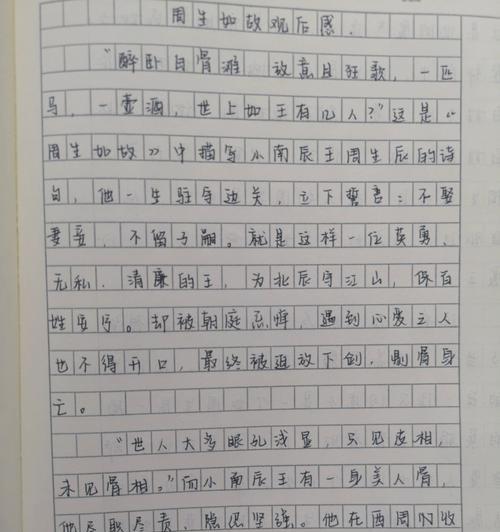 周生如故观后感.
"醉卧白骨滩 放意且狂歌,一匹
马,一壶酒,世上如王有几人?"这是《
周生如故》中描写小南辰王周生辰的诗
句,他一生驻守边关,立下誓言:不娶
妻妾,不留子嗣。就是这样一位英勇、
无私.清廉的王,为北辰守江山,保百
姓安宁。却被朝庭忌惮,遇到心爱之人
也不得开口,最终被迫放下剑,剔骨身
亡。
"世人大多眼孔浅显,只见皮相,
未见骨相。"而小南辰王有一身美人骨,
他尽职尽责,隐忍坚强。他在西周的收